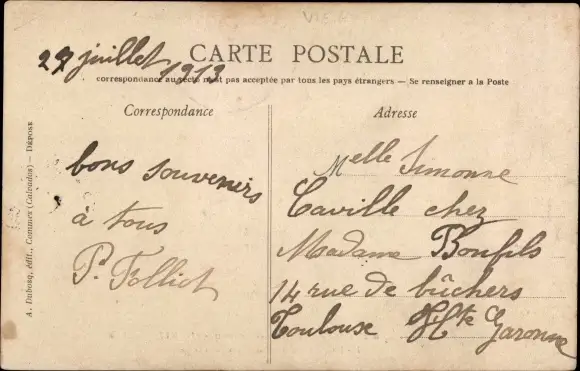 27 juillet 1912
CARTE POSTALE
correspondance au recto n'est pas acceptée par tous les pays étrangers — Se renseigner a la Poste
Correspondance
Adresse
bons souvenirs
à tous
P. Folliot
Melle Simonne
Caville chez
Madame Bonfils
14 rue de bûchers
Toulouse Hte Garonne
A. Dubosq, édit., Commes (Calvados) — DÉPOSÉ